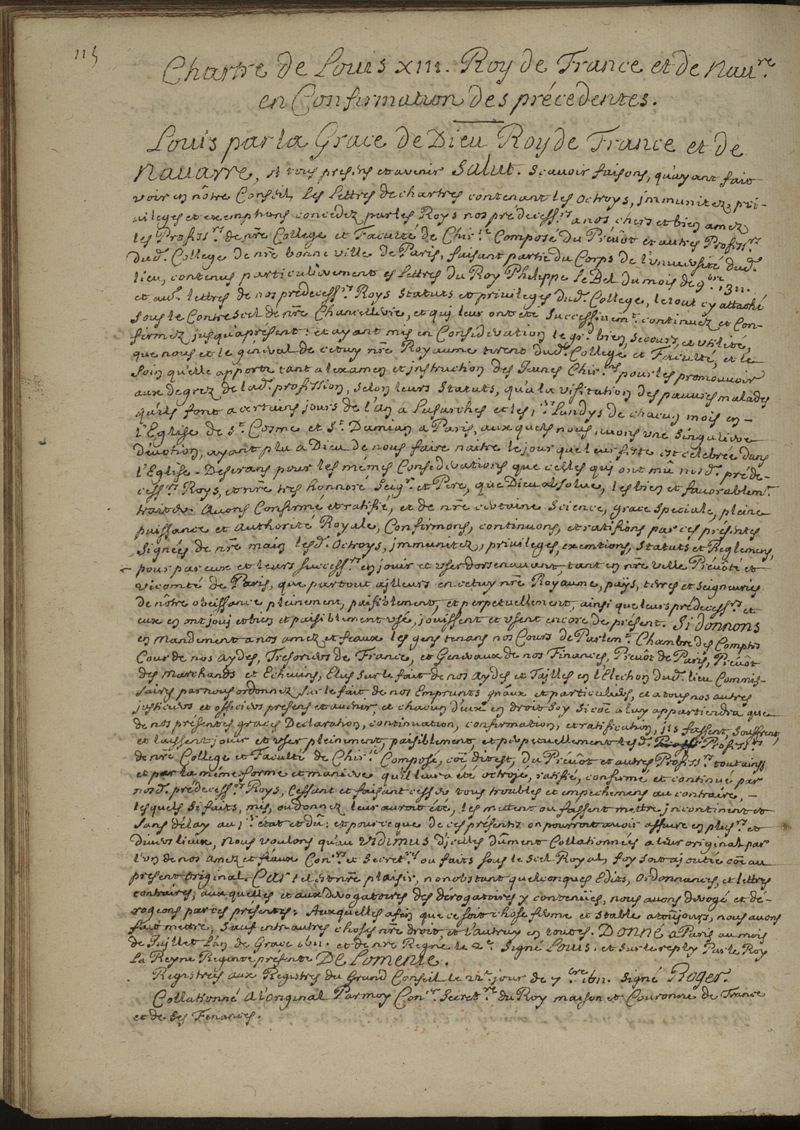 115
Chartre de Louis XIII. Roy de France et de Nau.re
en Confirmation des précédentes.
Louis par la Grace de Dieu Roy de France et de
Nauarre, A tous présens et avenir Salut. Scauoir faisons, qu'ayant fait
voir en nôtre Conseil, Les Lettres de chartres contenant les Octroys, immunitez, pri-
uileges et exemptions concedez par les Roys nos prédecess.rs a nos chers et bien amez
les Profess.rs de nre College et Faculté de Chir.ie Composé du Preuôt et autres Profess.rs
dud. College de nre bonne ville de Paris, faisant partie du Corps de l'uniuersité dud.
lieu, contenus particulierement es Lettres du Roy Philippe Le Bel du mois de 9.bre 1311.
et aus. lettres de nos prédecess.rs Roys Statuts et priuileges dud. College, le tout cy attaché
sous le Contrescel de nre Chancellerie, et qui leur ont été Successiuem.t continuez et Con-
firmez jusqu'a présent: et ayant mis en Considération le gr.d bien, Secours, et utilité,
que nous et le general de cetuy nre Royaume tirent dud. College et Faculté, et le
Soin qu'elle apporte tant a l'examen et instruction des Jeunes Chir.ns pour les promouuoir
aux degrez de lad. profession, Selon leurs Statuts, qu'a la visitation des pauures malades
qu'ils font a certains jours de l'an a Lusarches et les 1.rs Lundys de chacun mois en
l'Eglise de S.t Cosme et S.t Damian a Paris, auxquels nous auons une Singuliere
déuotion, ayant plu a Dieu de nous faire naitre le jour que leur feste est célébrée dans
l'Eglise. Desirans pour les mêmes Considérations que celles qui ont mu nosd. préde-
cess.rs Roys, et nre tres honnoré Seig.r et Pere, que Dieu absolue, les bien et fauorablem.t
traiter. Auons Confirmé et ratifié, et de nre certaine Science, grace Speciale, pleine
puissance et Authorité Royale, Confirmons, continuons, et ratifions par ces présentes
Signées de nre main lesd. Octroys, immunitez, priuileges, exemtions, Statuts et Reglemens,
pour par eux et leurs Success.rs en jouir et user dorsenauant tant en nre ville Preuôté et
vicomté de Paris, que par tout ailleurs en cetuy nre Royaume, pays, terres et Seigneuries
de nôtre obeissance pleinement, paisiblement, et perpetuellement, ainsi que leurs prédecess.rs et
eux en ont jouj et bien et paisiblement usé, jouissent et usent encore de présent. Si donnons
en Mandement a nos amez et feaux les gens tenans nos Cours de Parlem.t Chambre des Comptes
Cour de nos Aydes, Tresoriers de France, et Generaux de nos Finances, Preuôt de Paris, Preuôt
des Marchands et Echeuins, Elus Sur le fait de nos Aydes et Tailles en l'Election dud. lieu Commis-
saires par nous ordonnez Sur le fait de nos Emprunts gñaux et particuliers, et a tous nos autres
justiciers et officiers présens et auenir, et chacun d'eux en droit Soy Si coe a luy appartiendra que
de nos présentes graces Declaration, continuation, confirmation, et ratification, ils fassent, souffrent
et laissent jouir et user pleinement, paisiblement, et perpetuellement lesd. Profess.rs
de nre College et Faculté de Chir.ie Composé, coe dit est, du Preuôt et autres Profess.rs tout ainsi
et par la même forme et maniere qu'il leur a été octroyé, ratifié, confirmé et continué par
nosd. prédecess.rs Roys, Cessant et faisant cesser tous troubles et empéchemens au contraire,
lesquels Si faits, mis, ou donnez leur auront été, les mettent ou fassent mettre jncontinent et
Sans délay au 1.r état et dû: et pour ce que de ces présentes on pourroit auoir affaire en plus.rs et
diuers lieux, Nous voulons qu'au VIDIMUS d'jcelles düment Collationnés a leur original par
l'un de nos amez et feaux Con.ers et Secret.res ou faits Sous le Scel Royal, foy Soit ajoutée coe au
présent original. Car tel est nre plaisir, nonobstant quelconques Edits, Ordonnances, et lettres
contraires, auxquelles et aux dérogatoires des dérogatoires y contenües, nous auons dérogé et dé-
rogeons par ces présentes; Auxquelles afin que ce soit chose ferme et Stable a toujours, nous auons
fait mettre, Sauf entr'autres choses nre droit, et l'autruy en toutes. DONNÉ a Paris au mois
de Juillet L'an de Grace 1611. et de nre Regne le 2.e Signé Louis. et Sur le reply Par le Roy
La Reyne Régente présente DE LOMENIE.
Registrées aux Registres du Grand Conseil le 22.e jour de 7.bre 1611. Signé Roger.
Collationné a l'original Par moy Con.er Secret.re du Roy maison et Couronne de France
et de Ses Finances.